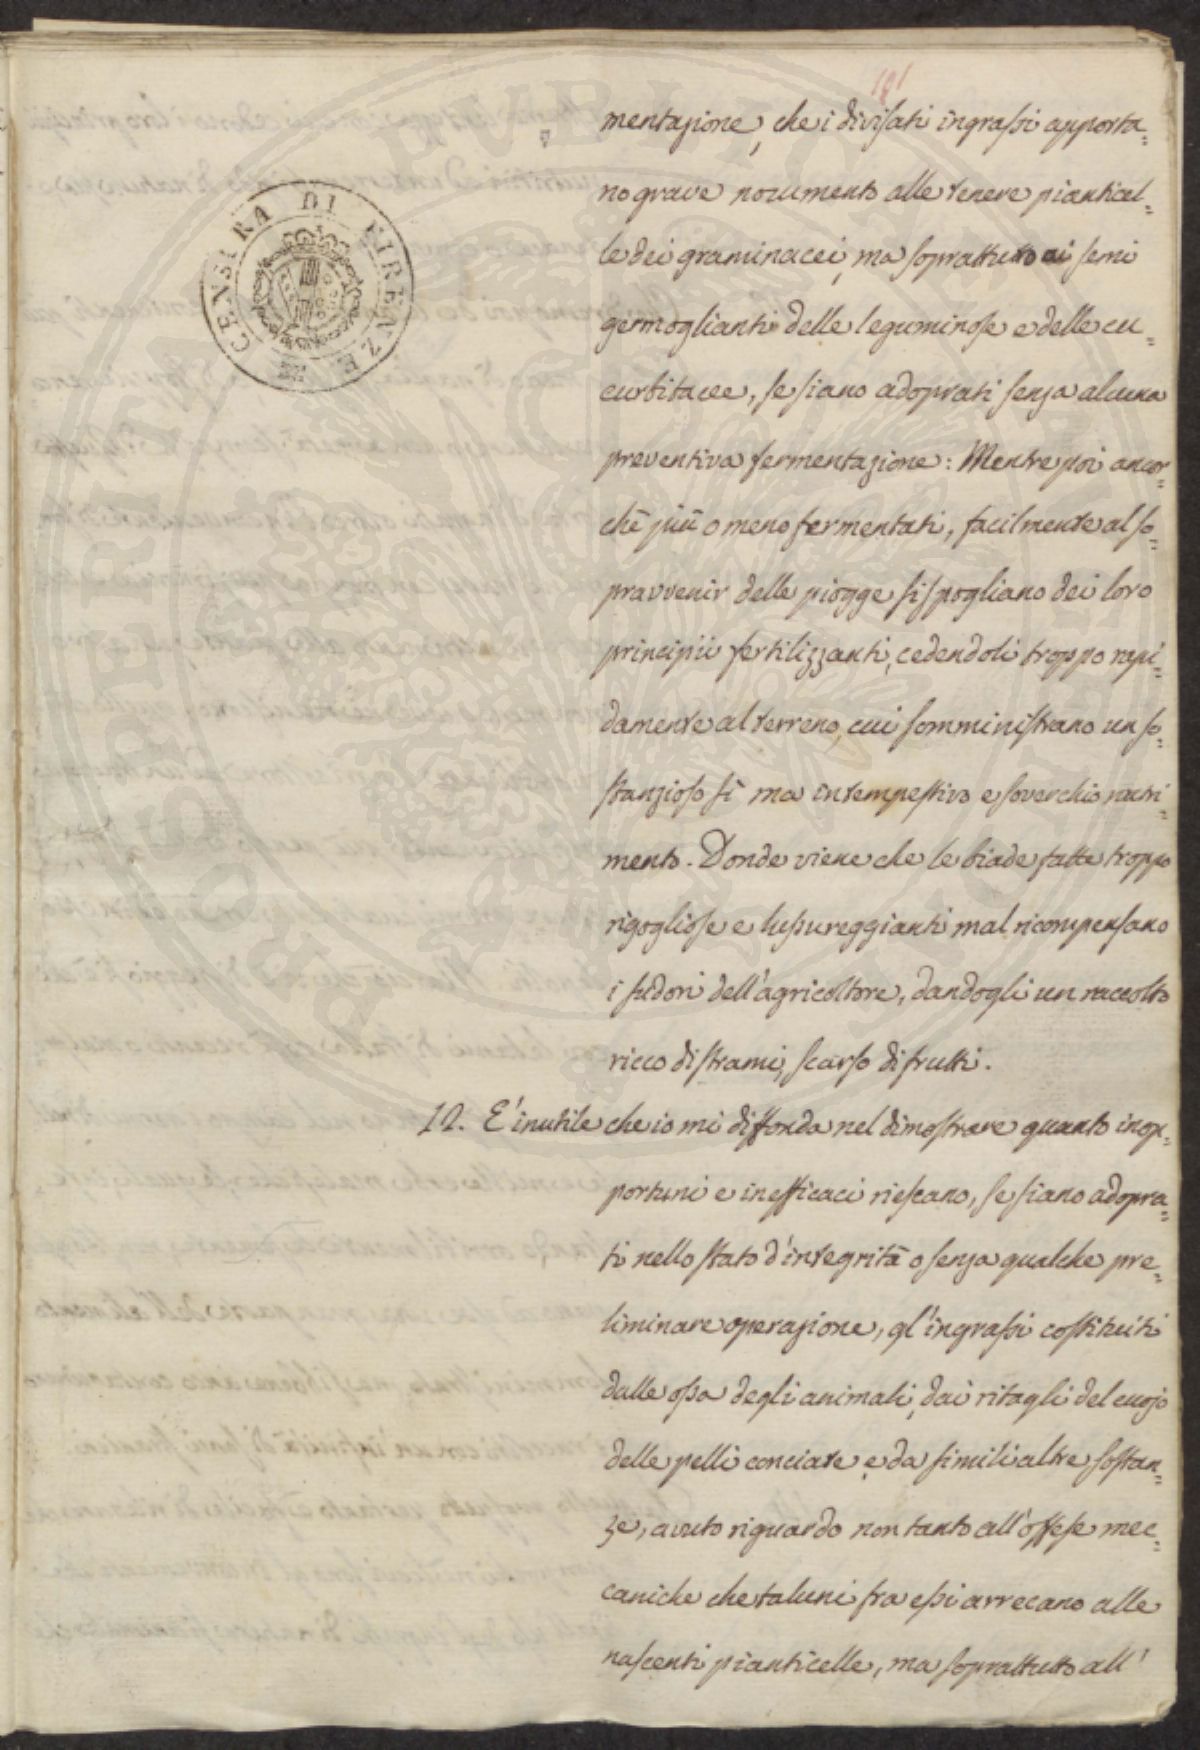 181
mentazione, che i divisati ingrassi apporta=
no grave nocumento alle tenere pianticel=
le dei graminacei, ma soprattutto ai semi
germoglianti delle leguminose e delle cu=
curbitacee, se siano adoprati senza alcuna
preventiva fermentazione: Mentre poi ancor=
chè più o meno fermentati, facilmente al so=
pravvenir delle piogge si spogliano dei loro
principii fertilizzanti, cedendoli troppo rapi=
damente al terreno, cui somministrano un so=
stanzioso sì ma intempestivo e soverchio nutri=
mento. Donde viene che le biade fatte troppo
rigogliose e lussureggianti mal ricompensano
i sudori dell'agricoltore, dandogli un raccolto
ricco di strami, scarso di frutti.
12. E' inutile che io mi diffonda nel dimostrare quanto inop=
portuni e inefficaci riescano, se siano adopra=
ti nello stato d'integrità o senza qualche pre=
liminare operazione, gl'ingrassi costituiti
dalle ossa degli animali, dai ritagli del cuojo
delle pelli conciate, e da simili altre sostan=
ze, avuto riguardo non tanto all'offese mec=
caniche che taluni fra essi arrecano alle
nascenti pianticelle, ma soprattutto all'
CENSURA DI FIRENZE